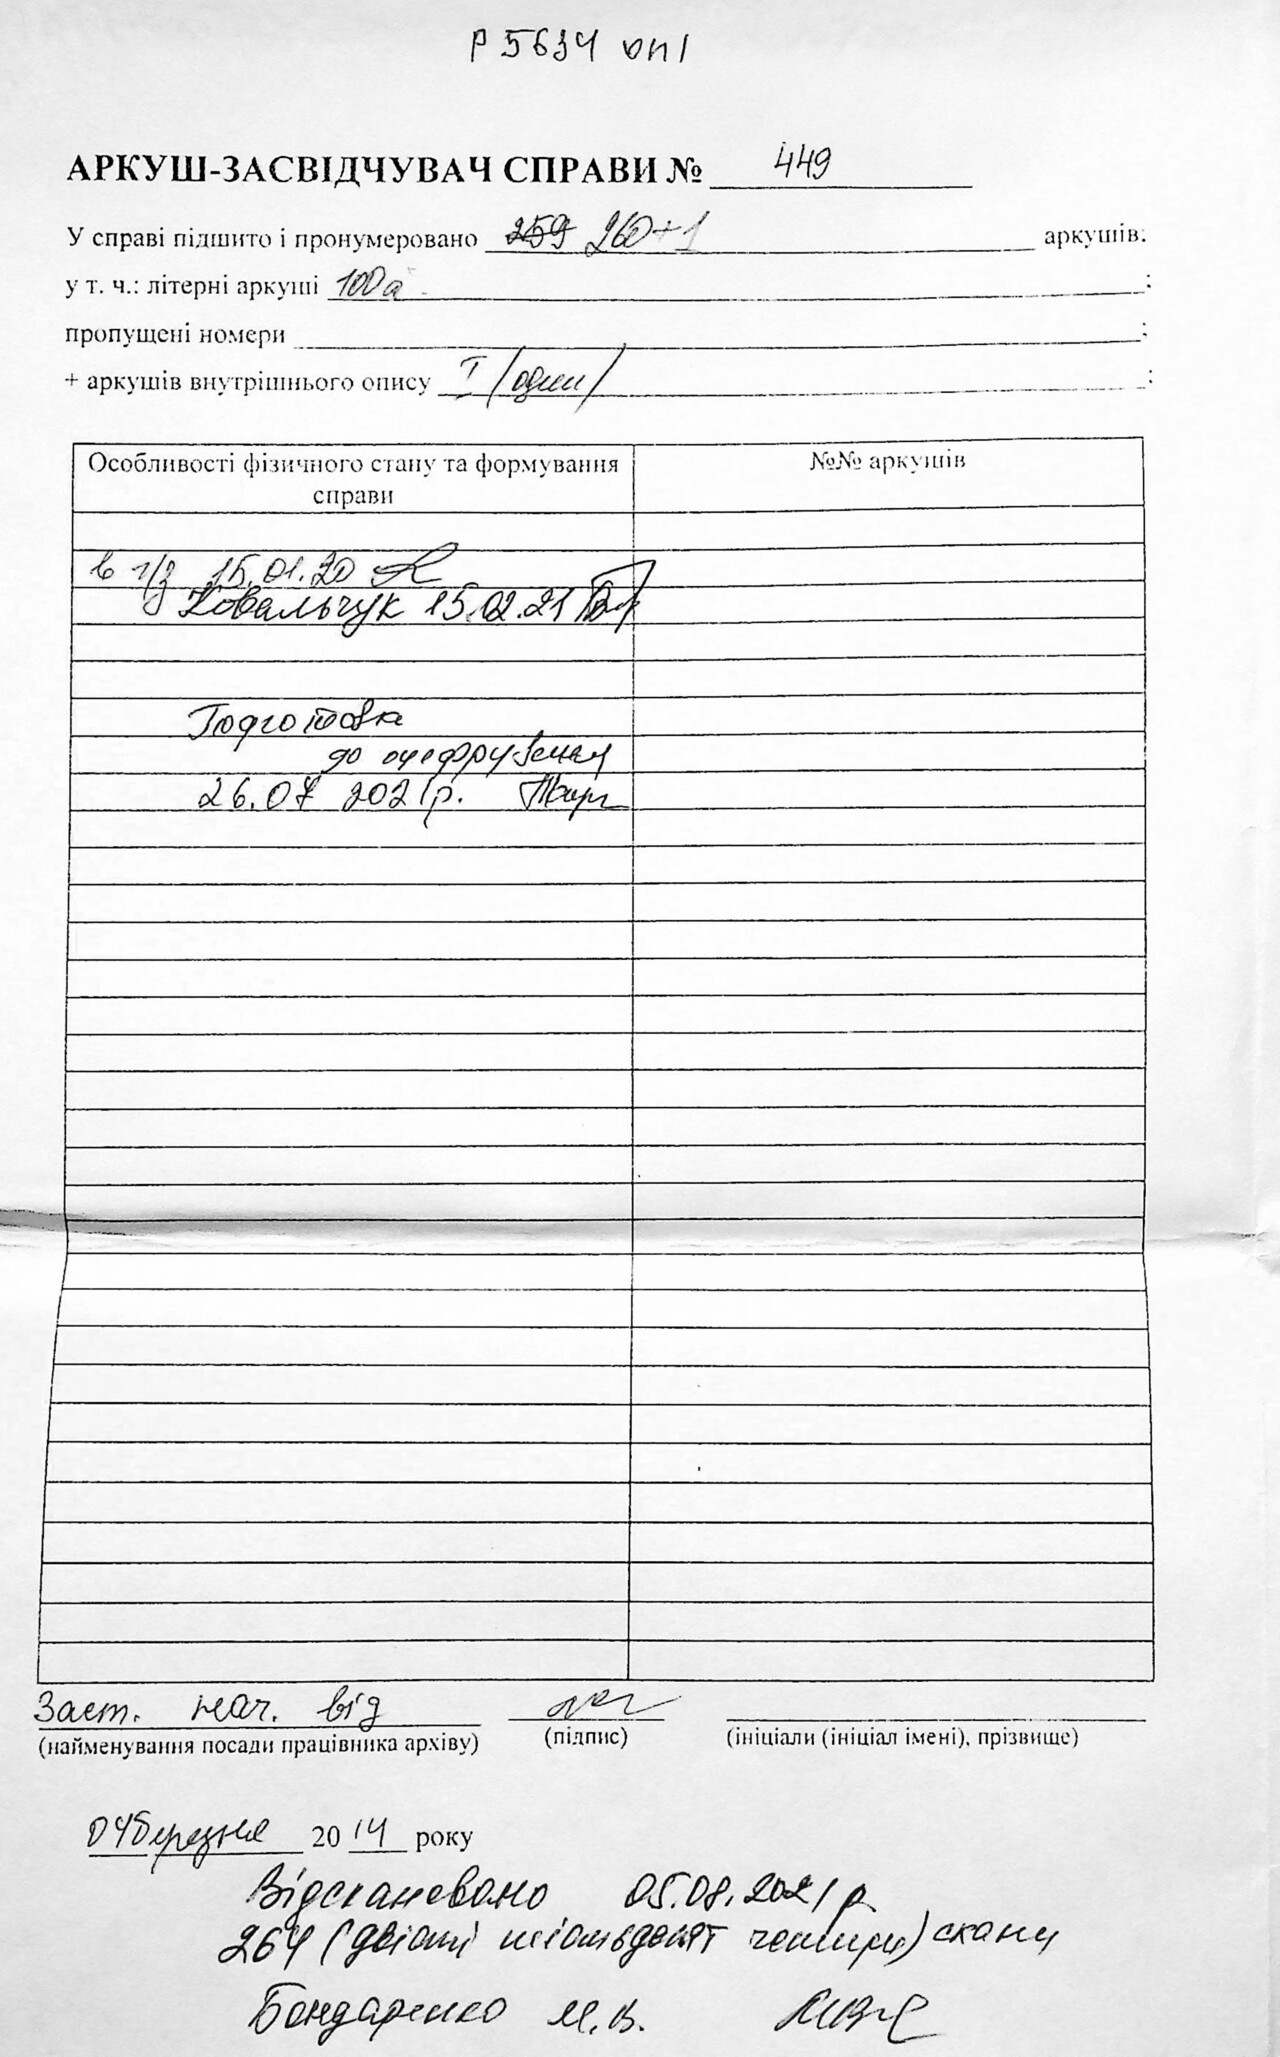 Р 5634 оп 1
АРКУШ-ЗАСВІДЧУВАЧ СПРАВИ № 449
У справі підшито і пронумеровано 259 260+1 аркушів:
у т. ч.: літерні аркуші 100а ;
пропущені номери ;
+ аркушів внутрішнього опису I /один/ ;
Особливості фізичного стану та формування справи
№№ аркушів
в ч/з 15.01.20
Ковальчук 15.02.21
Подготовка
до оцифрування
26.07 2021р.
Заст. нач. від
(найменування посади працівника архіву) (підпис) (ініціали (ініціал імені), прізвище)
04 березня 2014 року
Відскановано 05.08.2021 р
264 (двісті шістьдесят чотири) скани
Бондаренко М.В.